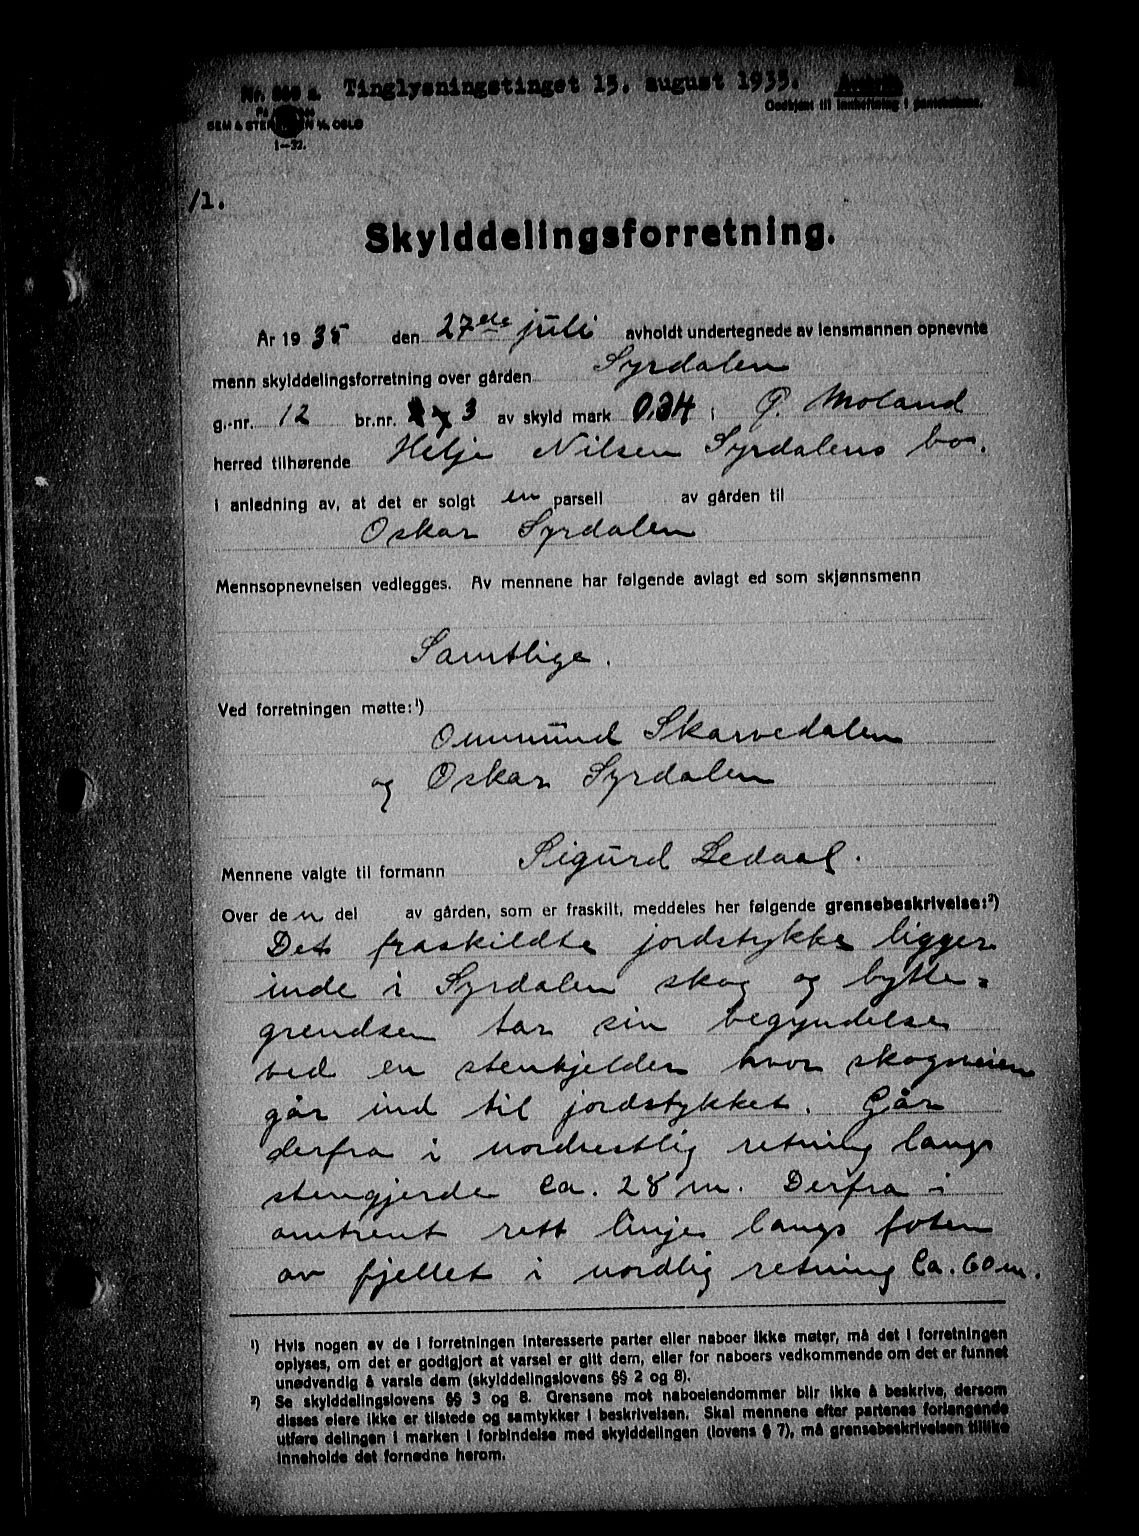 Tinglysningstinget 15. august 1935.
Godkjent til innheftning i panteboken.
SEM & STENERSEN A/S OSLO
1—32.
/1.
Skylddelingsforretning.
År 1935 den 27de juli avholdt undertegnede av lensmannen opnevnte
menn skylddelingsforretning over gården Syrdalen
g.-nr. 12 br.nr. 3 av skyld mark 0.34 i Ø. Moland
herred tilhørende Helje Nilsen Syrdalens bo.
i anledning av, at det er solgt en parsell av gården til
Oskar Syrdalen
Mennsopnevnelsen vedlegges. Av mennene har følgende avlagt ed som skjønnsmenn
Samtlige.
Ved forretningen møtte:¹)
Ommund Skarvedalen
og Oskar Syrdalen
Mennene valgte til formann Sigurd Ledaal.
Over den del av gården, som er fraskilt, meddeles her følgende grensebeskrivelse:²)
Det fraskildte jordstykke ligger
inde i Syrdalen skog og bytte=
grendsen tar sin begyndelse
ved en stenkjelder hvor skogsveien
går ind til jordstykket. Går
derfra i nordvestlig retning langs
stengjerde ca. 28 m. Derfra i
omtrent rett linje langs foten
av fjellet i nordlig retning ca. 60 m.
¹) Hvis nogen av de i forretningen interesserte parter eller naboer ikke møter, må det i forretningen
oplyses, om det er godtgjort at varsel er gitt dem, eller for naboers vedkommende om det er funnet
unødvendig å varsle dem (skylddelingslovens §§ 2 og 8).
²) Se skylddelingslovens §§ 3 og 8. Grensene mot naboeiendommer blir ikke å beskrive, dersom
disses eiere ikke er tilstede og samtykker i beskrivelsen. Skal mennene efter partenes forlangende
utføre delingen i marken i forbindelse med skylddelingen (lovens § 7), må grensebeskrivelsen tillike
inneholde det fornødne herom.